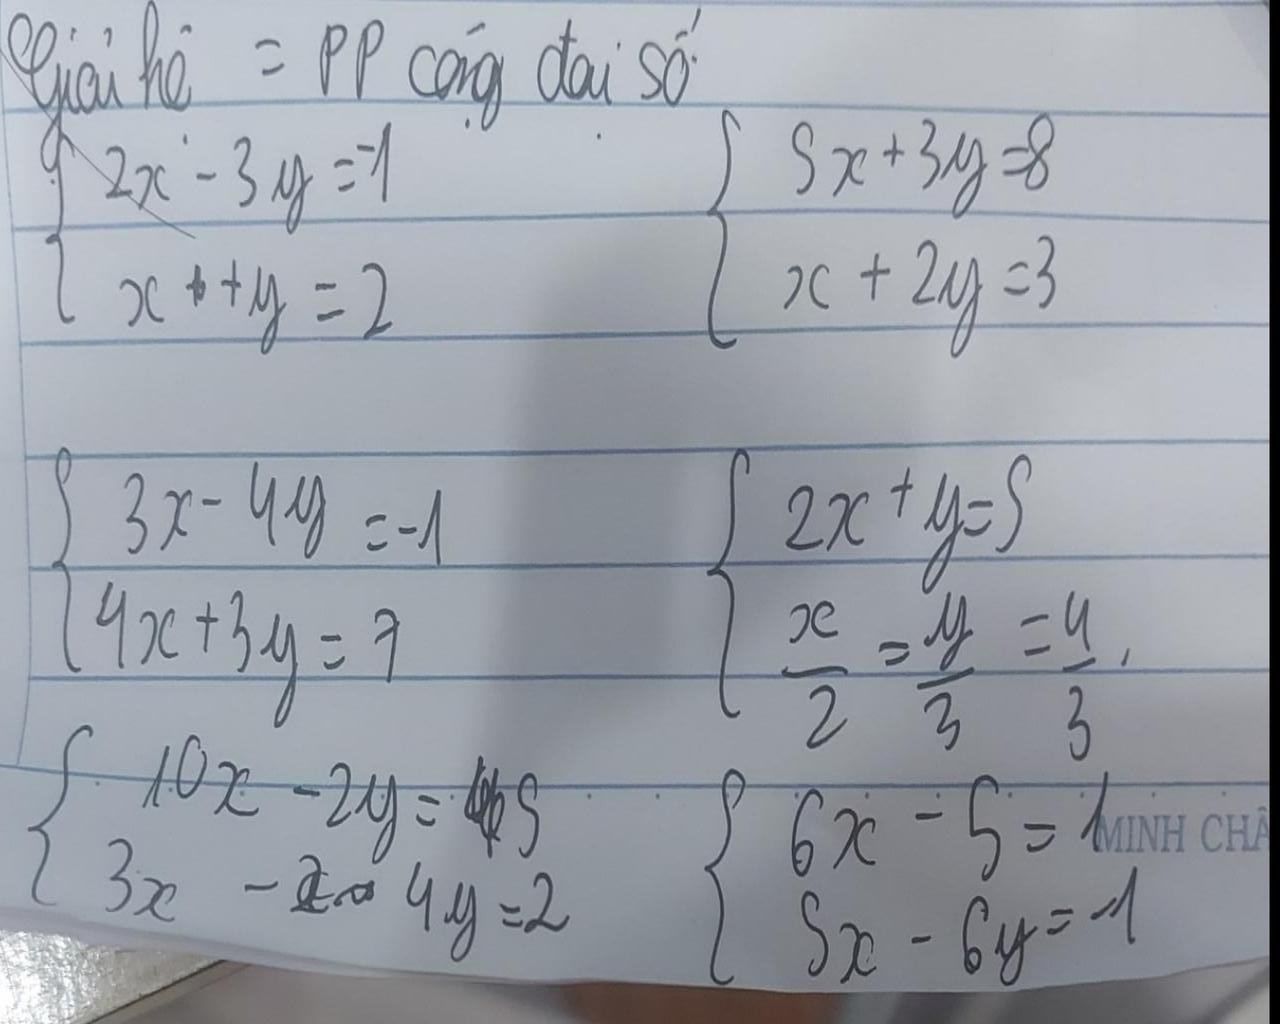 Giải hệ = PP cộng đại số
2x - 3y = -1
x + y = 2
5x + 3y = 8
x + 2y = 3
3x - 4y = -1
4x + 3y = 7
2x + y = 5
x/2 = y/3 = 4/3
10x - 2y = 5
3x - 4y = 2
6x - 5 = 1
5x - 6y = -1
MINH CHÂ